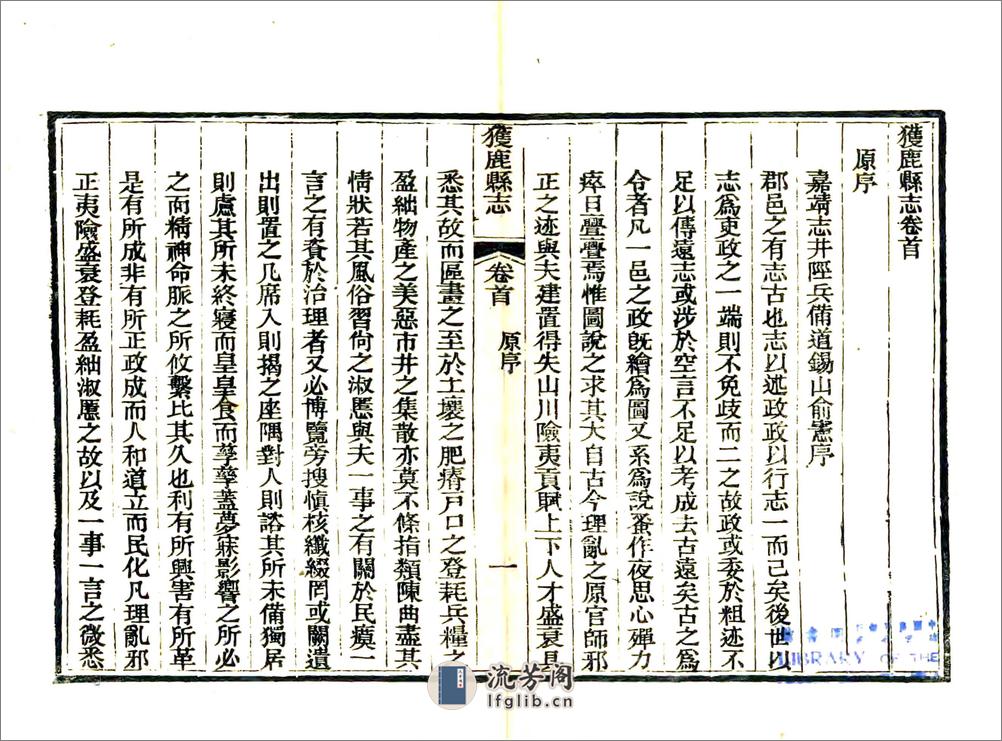 獲鹿縣志卷首
原序
嘉靖志井陘兵備道錫山俞憲序
郡邑之有志古也志以述政政以行志一而已矣後世以
志爲吏政之一端則不免歧而二之故政或委於粗迹不
足以傳遠志或涉於空言不足以考成去古遠矣古之爲
令者凡一邑之政旣繪爲圖又系爲說蚤作夜思心殫力
瘁日亹亹焉惟圖說之求其大自古今理亂之原官師邪
正之迹與夫建置得失山川險夷貢賦上下人才盛衰具
獲鹿縣志
卷首
原序
一
悉其故而區畫之至於土壤之肥瘠戸口之登耗兵糧之
盈絀物產之美惡市井之集散亦莫不條指類陳曲盡其
情狀若其風俗習尙之淑慝與夫一事之有關於民瘼一
言之有資於治理者又必博覽旁搜愼核纖綴罔或闕遺
出則置之几席入則揭之座隅對人則諮其所未備獨居
則慮其所未終寢而皇皇食而孳孳蓋夢寐影響之所必
之而精神命脈之所攸繫比其久也利有所興害有所革
是有所成非有所正政成而人和道立而民化凡理亂邪
正夷險盛衰登耗盈絀淑慝之故以及一事一言之微悉
LIBRARY OF THE
流芳阁
lfglib.cn